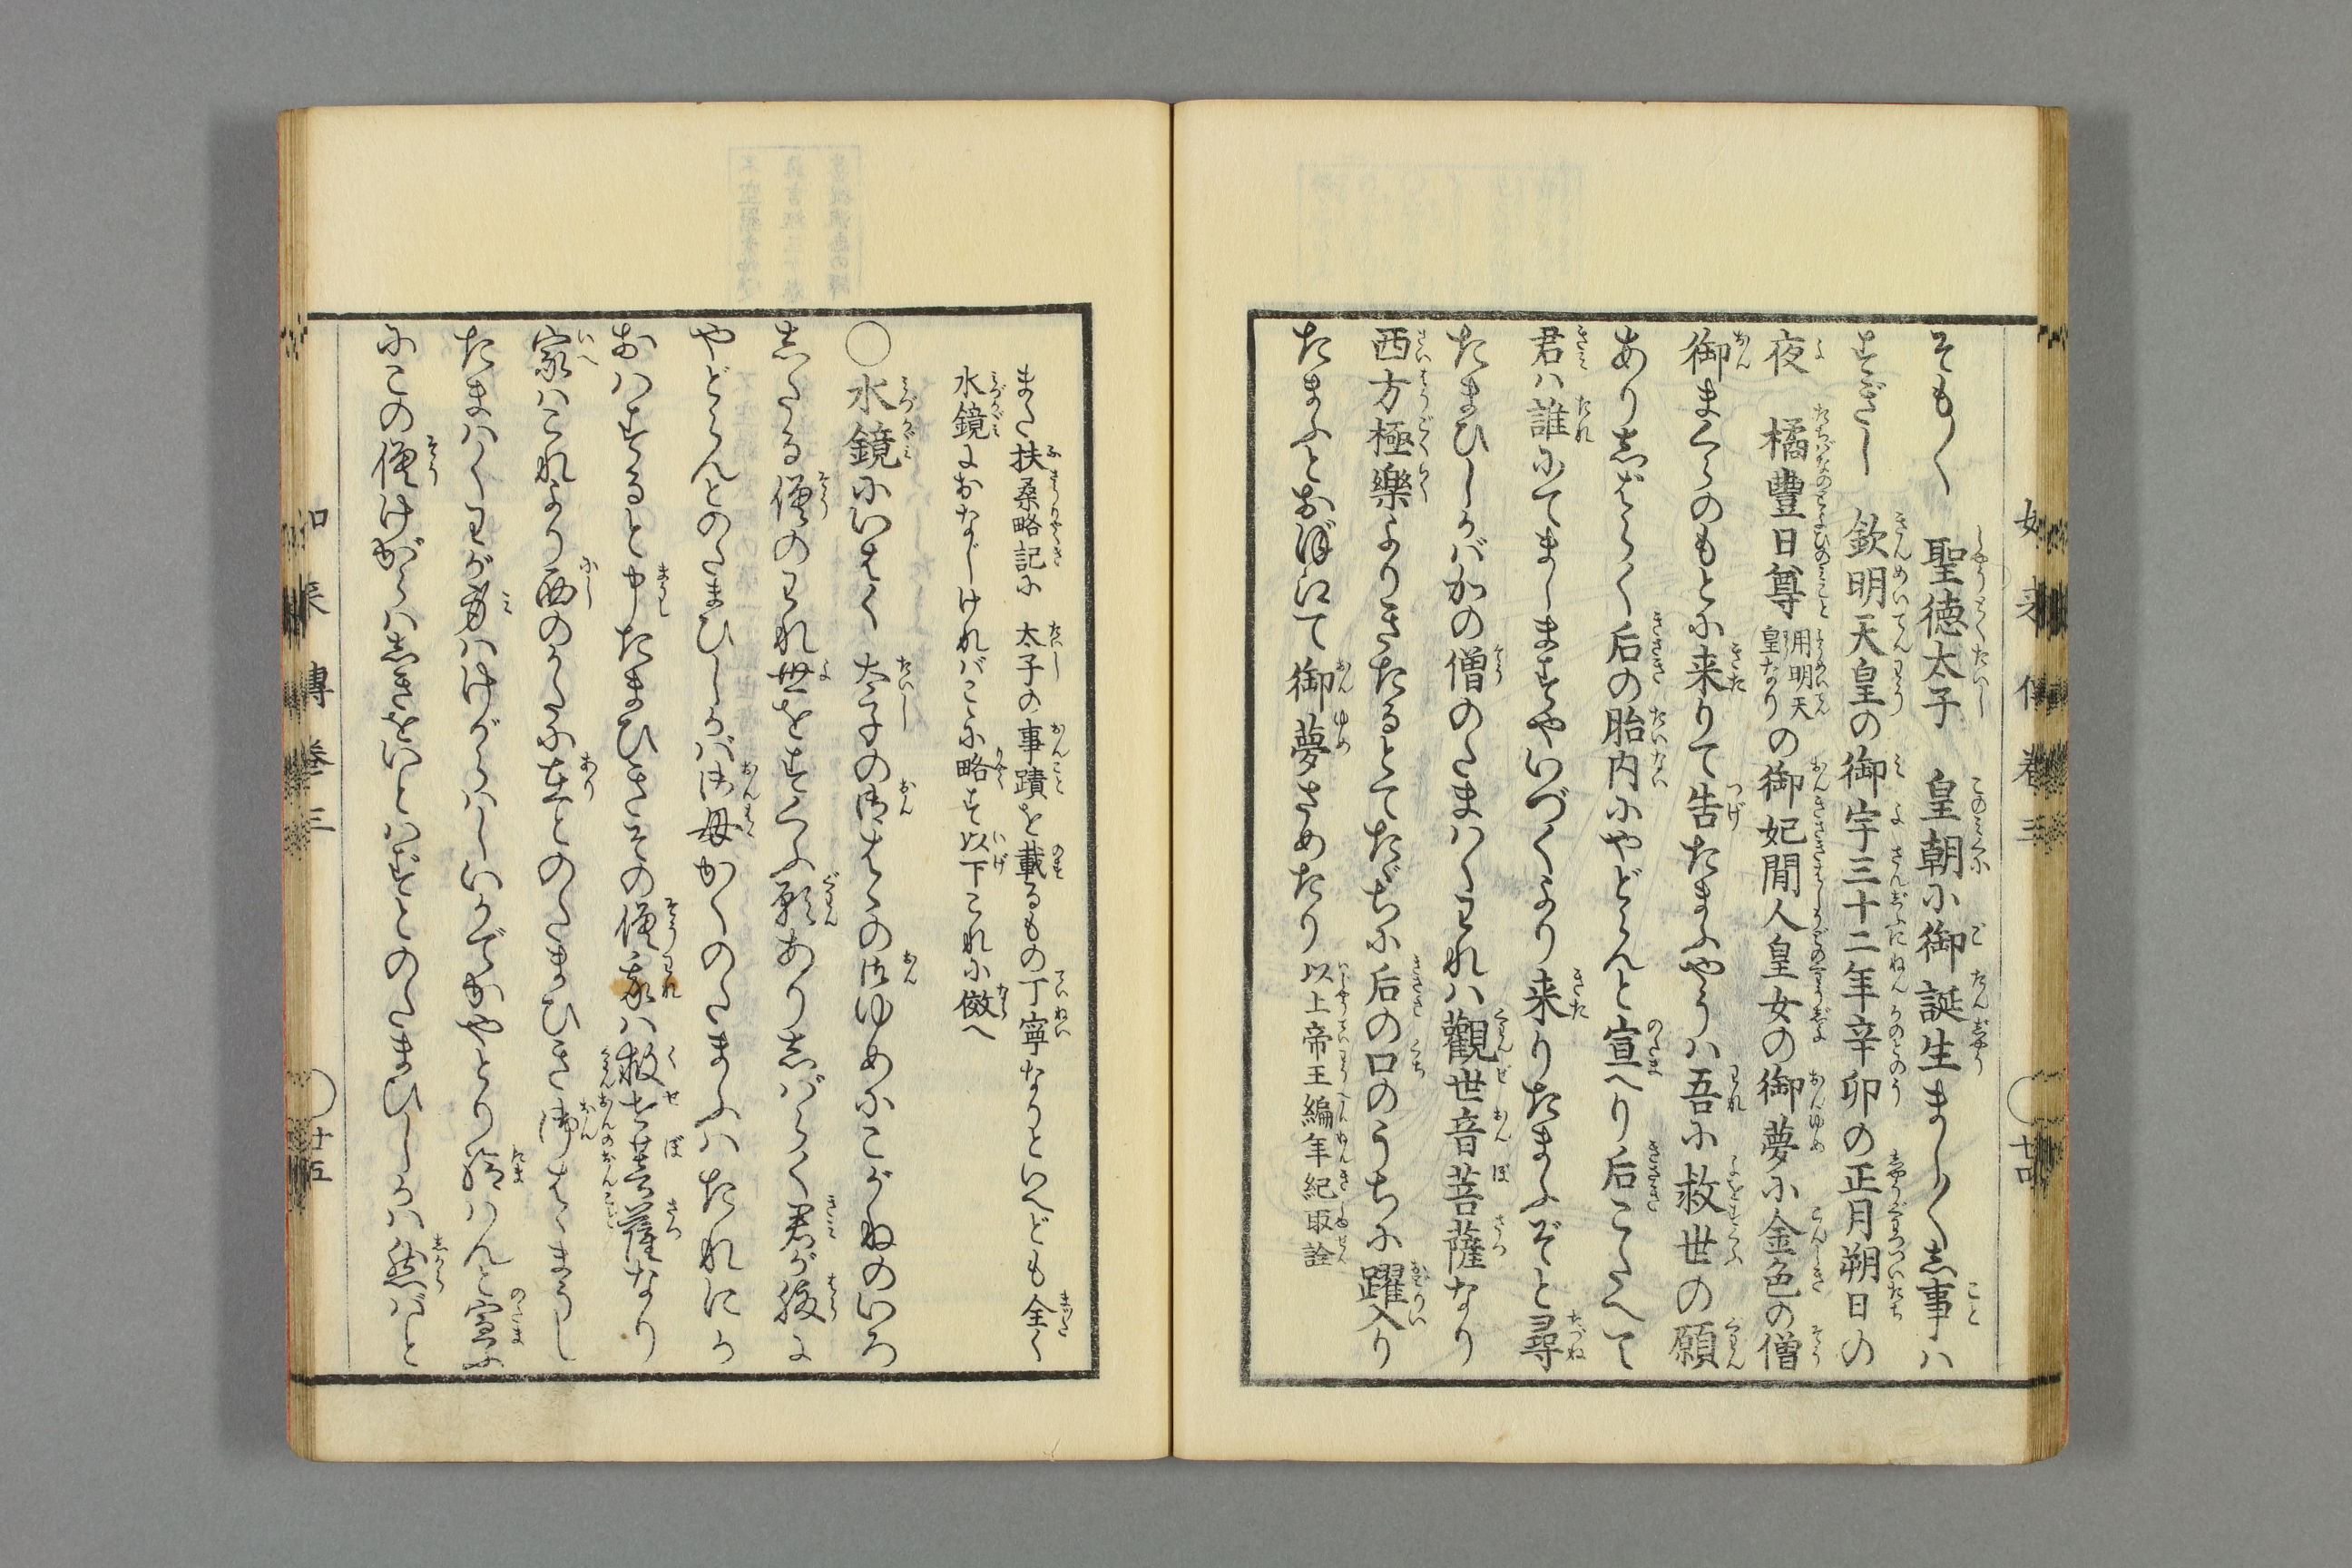 如来傳巻三 ○ 廿四
そも〳〵　聖徳太子　皇朝に御誕生まし〳〵し事ハ
すぎし　欽明天皇の御宇三十二年辛卯の正月朔日の
夜　橘豊日尊用明天皇なりの御妃間人皇女の御夢に金色の僧
御まくらのもとに来りて告たまふやうハ吾に救世の願
ありしばらく后の胎内にやどらんと宣へり后こたへて
君ハ誰にてましますやいづくより来りたまふぞと尋
たまひしかバかの僧のたまハくわれハ觀世音菩薩なり
西方極樂よりきたるとてたゞちに后の口のうちに躍入り
たまふとおぼえて御夢さめたり以上帝王編年紀取詮
また扶桑略記に　太子の事蹟を載るもの丁寧なりといへども全く
水鏡におなじけれバこゝに略す以下これに傚へ
○水鏡にいはく　太子の御はゝの御ゆめにこがねのいろ
したる僧のわれ世をすくふ願ありしばらく君が腹に
やどらんとのたまひしかバ御母かくのたまふハたれにか
おハすると申たまひきその僧我ハ救世菩薩なり
家ハこれより西のかたに在とのたまひき御はゝまうし
たまハくわが身ハけがらハしいかでかやとり給ハんと宣ふ
にこの僧けがらハしきをいとハずとのたまひしかハ然バと
如来傳巻三 ○ 廿五